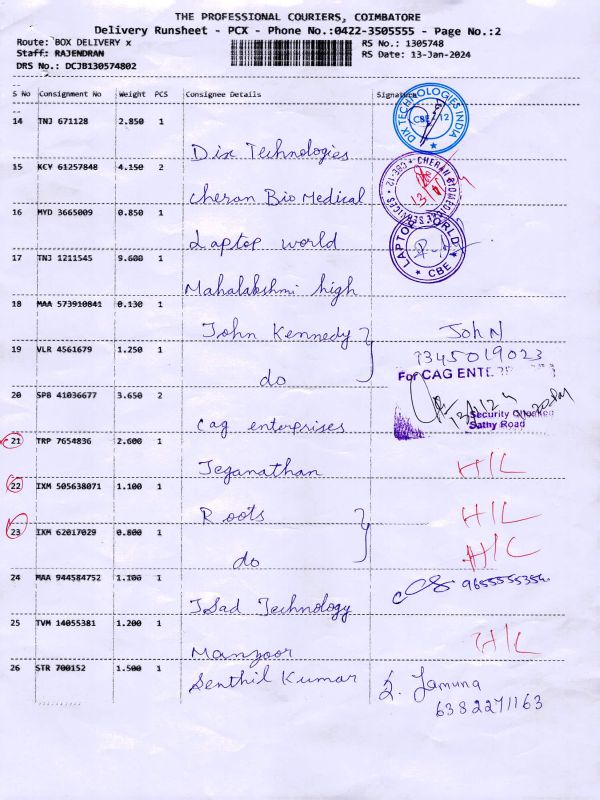 THE PROFESSIONAL COURIERS, COIMBATORE
Delivery Runsheet - PCX - Phone No.:0422-3505555 - Page No.:2
Route: BOX DELIVERY x RS No.: 1305748
Staff: RAJENDRAN RS Date: 13-Jan-2024
DRS No.: DCJB130574802
S No Consignment No Weight PCS Consignee Details Signature
14 TNJ 671128 2.850 1 Dix Technologies
DIX TECHNOLOGIES INDIA CBE - 12
15 KCY 61257848 4.150 2 Cheran Bio Medical
CHERAN BIOMEDICAL SERVICES CBE-12
16 MYD 3665009 0.850 1 Laptop world
LAPTOP WORLD CBE
17 TNJ 1211545 9.600 1 Mahalakshmi high
18 MAA 573910841 0.130 1 John Kennedy JohN
19 VLR 4561679 1.250 1 do 9345019023
20 SPB 41036677 3.650 2 Cag enterprises
For CAG ENTE
Security
Sathy Road
21 TRP 7654836 2.600 1 Jeganathan H/L
22 IXM 505638071 1.100 1 Roots H/L
23 IXM 62017029 0.800 1 do H/L
24 MAA 944584752 1.100 1 JSad Technology 9655555354
25 TVM 14055381 1.200 1 Manzoor H/L
26 STR 700152 1.500 1 Senthil Kumar S. Jamuna
6382271163